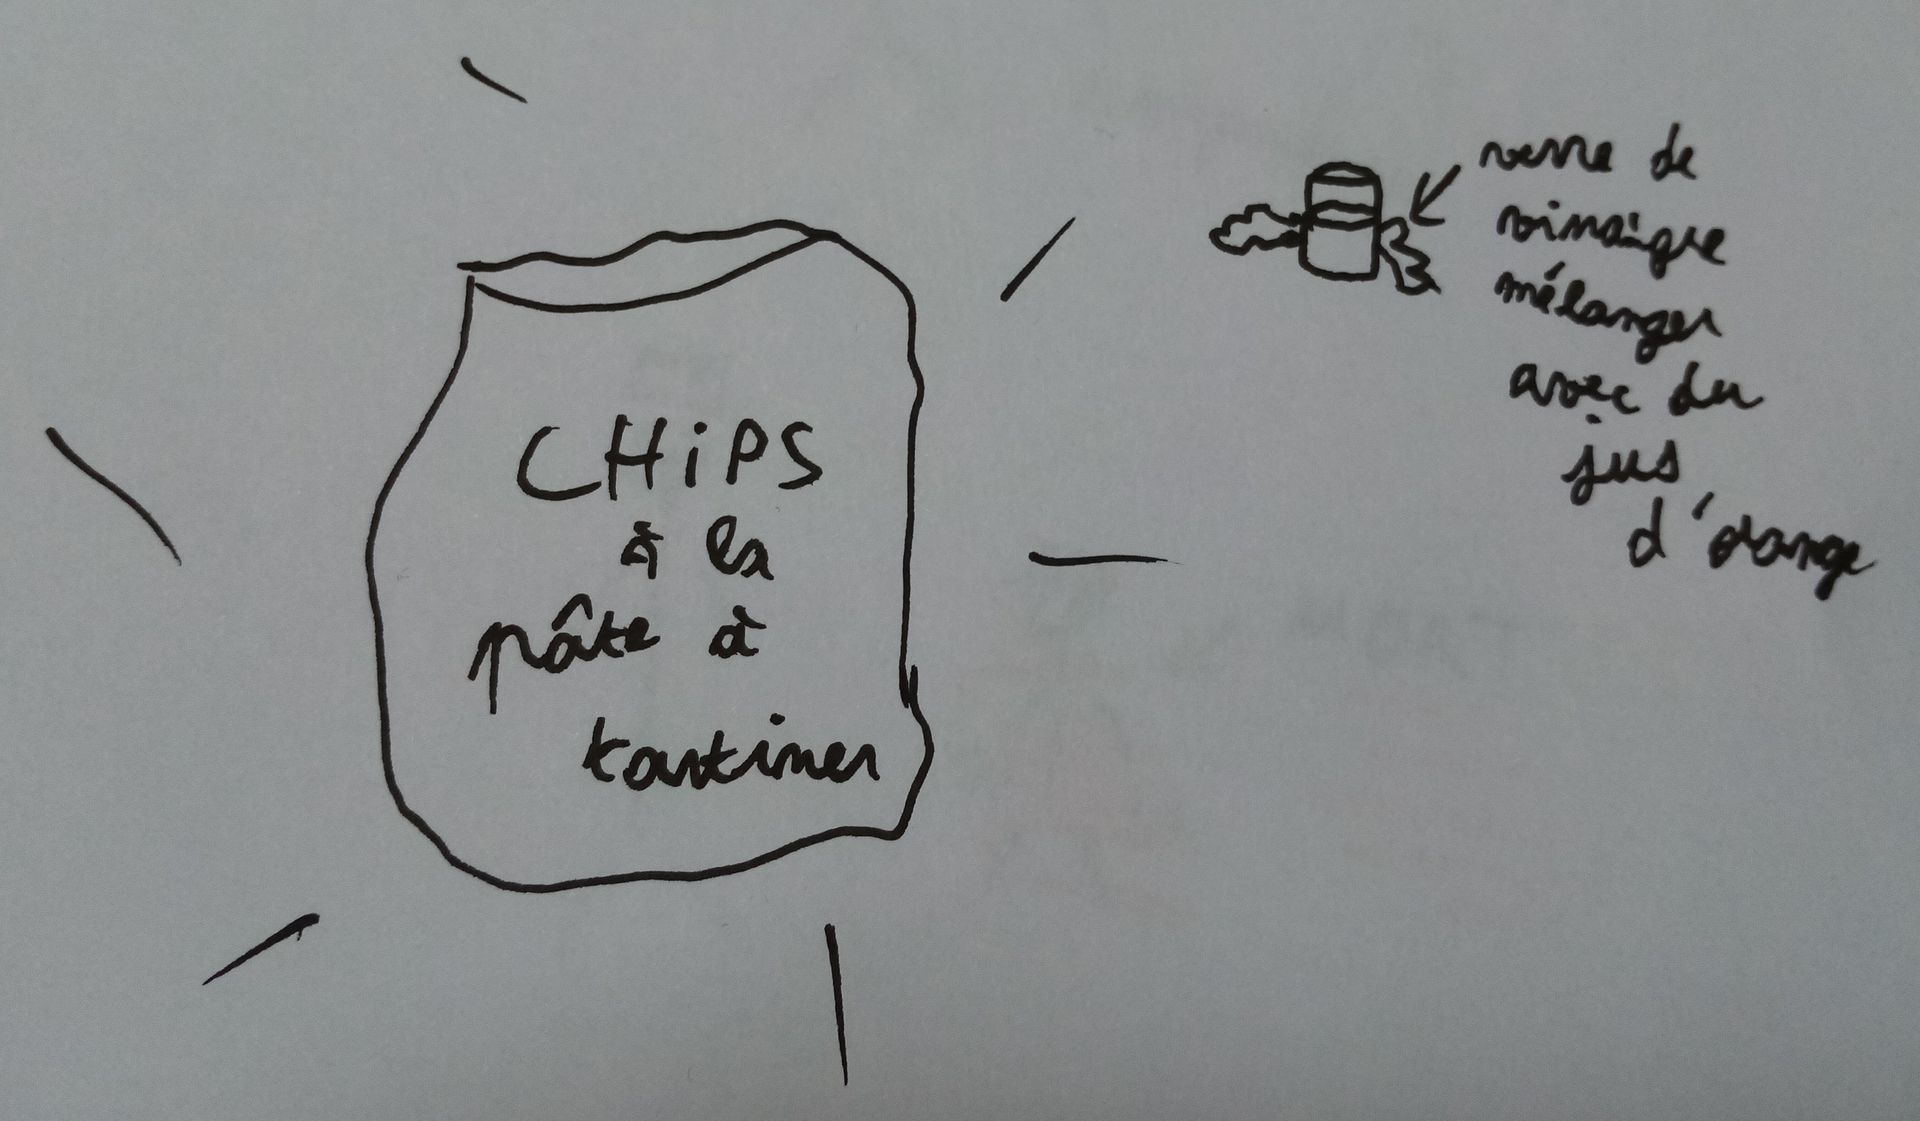 CHiPS
à la
pâte à
tartiner
verre de
vinaigre
mélanger
avec du
jus
d'orange